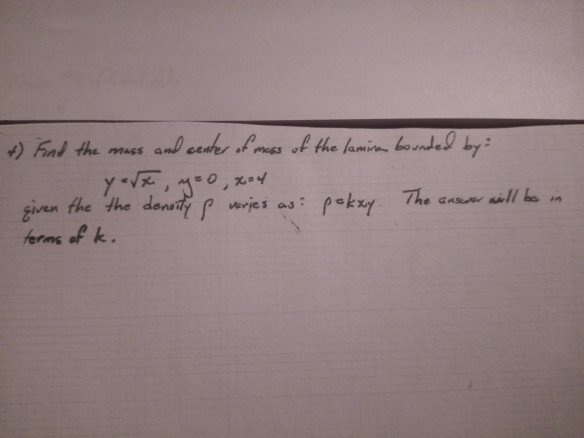 4) Find the mass and center of mass of the lamina bounded by:
y=√x, y=0, x=4
given the the density ρ varies as: ρ=kxy The answer will be in
terms of k.